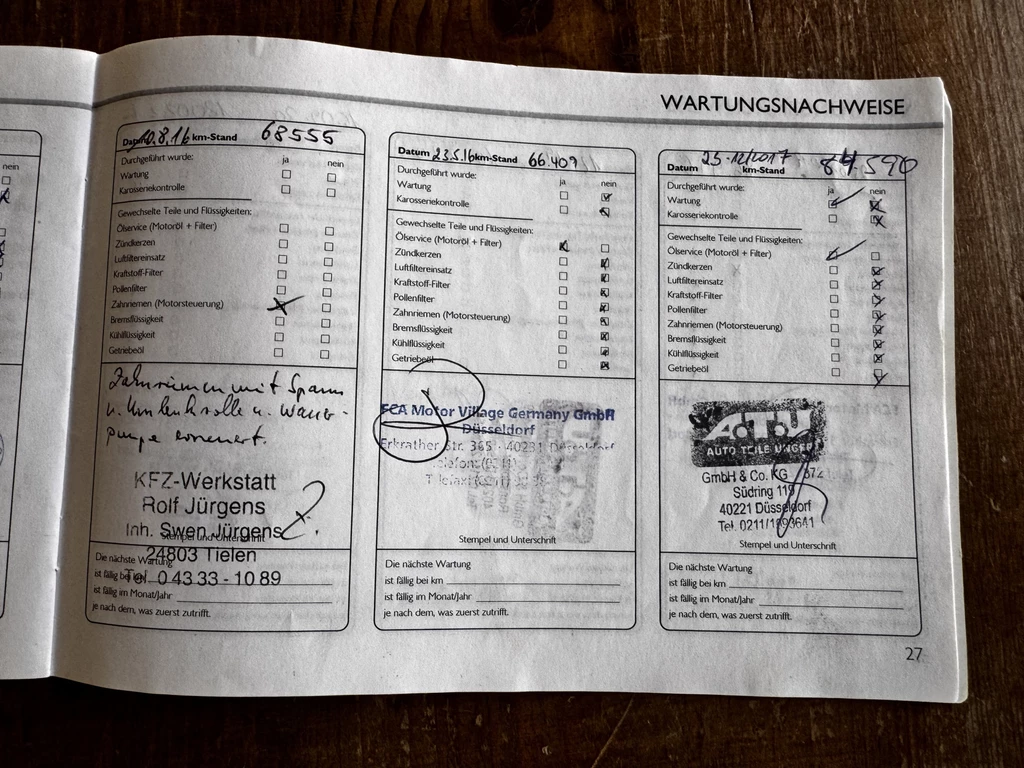 WARTUNGSNACHWEISE
nein
Datum 10.8.16 km-Stand 68555
Durchgeführt wurde: ja nein
Wartung
Karosseriekontrolle
Gewechselte Teile und Flüssigkeiten:
Ölservice (Motoröl + Filter)
Zündkerzen
Luftfiltereinsatz
Kraftstoff-Filter
Pollenfilter
Zahnriemen (Motorsteuerung)
Bremsflüssigkeit
Kühlflüssigkeit
Getriebeöl
Zahnriemen mit Spann
u. Umlenkrolle u. Wasser-
pumpe erneuert.
KFZ-Werkstatt
Rolf Jürgens
Inh. Swen Jürgens
Stempel und Unterschrift
24803 Tielen
Die nächste Wartung
Tel. 0 43 33 - 10 89
ist fällig bei km
ist fällig im Monat/Jahr
je nach dem, was zuerst zutrifft.
Datum 23.5.16 km-Stand 66.409
Durchgeführt wurde: ja nein
Wartung
Karosseriekontrolle
Gewechselte Teile und Flüssigkeiten:
Ölservice (Motoröl + Filter)
Zündkerzen
Luftfiltereinsatz
Kraftstoff-Filter
Pollenfilter
Zahnriemen (Motorsteuerung)
Bremsflüssigkeit
Kühlflüssigkeit
Getriebeöl
FCA Motor Village Germany GmbH
Düsseldorf
Erkrather Str. 365 - 40231 Düsseldorf
Stempel und Unterschrift
Die nächste Wartung
ist fällig bei km
ist fällig im Monat/Jahr
je nach dem, was zuerst zutrifft.
Datum 25-12/2017 km-Stand 84590
Durchgeführt wurde: ja nein
Wartung
Karosseriekontrolle
Gewechselte Teile und Flüssigkeiten:
Ölservice (Motoröl + Filter)
Zündkerzen
Luftfiltereinsatz
Kraftstoff-Filter
Pollenfilter
Zahnriemen (Motorsteuerung)
Bremsflüssigkeit
Kühlflüssigkeit
Getriebeöl
A.T.U
AUTO TEILE UNGER
GmbH & Co. KG 872
Südring 119
40221 Düsseldorf
Tel. 0211/1893641
Stempel und Unterschrift
Die nächste Wartung
ist fällig bei km
ist fällig im Monat/Jahr
je nach dem, was zuerst zutrifft.
27